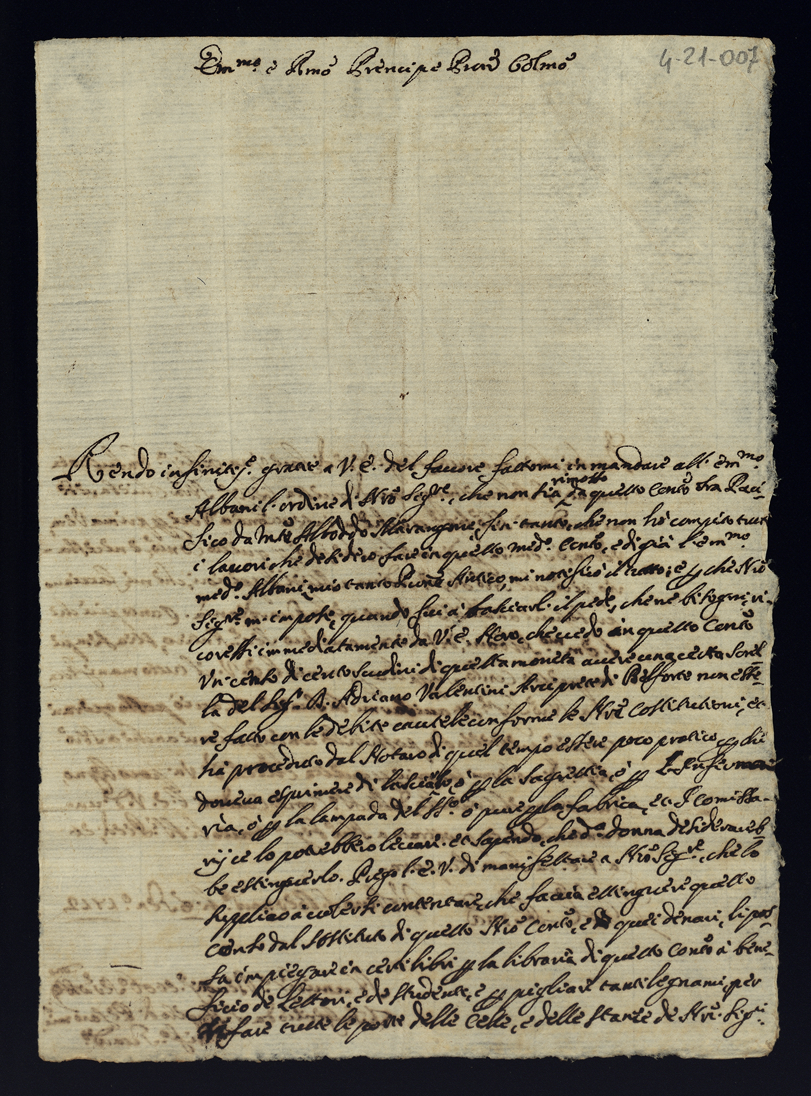 Em.mo e Rmo Prencipe Pron Colmo
4-21-007
Rendo infinite grazie a V. E. del favore fattomi in mandare all' Em.mo
Albani l'ordine di Nro Sig.re, che non sia rimosso da questo Conto fra Paci-
fico da Mte Albodo Marangone sin tanto, che non hà compito tutti
i lavori che desidero fare in questo med.o Conto, e di già l'Em.mo
med.o Albani mio tanto Prone Antico, mi notificò il tutto; e che Nro
Sig.re m'impose, quando fui à baciarli il piede, che ne bisogni ri-
corressi immediatamente da V. E. Hero, che vedo in questo Conto
Un cento di cento scudini di questa moneta avere una certa sorel-
la del Sig.r D. Adriano Valentini Arciprete di Belforte non esse-
re fatto con le debite cautele conforme le Nre Costitutioni, e
hà proceduto dal Notaro di quel tempo essere poco pratico, che
doveva esprimere di lasciarlo, ò p la sagrestia, ò p L'Inferma-
ria, ò p la lampada del SS.o ò pure p la fabrica, e i Comissa-
rij ce lo potrebbero levare. et sapendo, che d.a donna desiderareb-
be estinguerlo. Prego l'E. V. di manifestare a Nro Sig.re, che lo
supplico à volersi contentare, che faccia estinguere quello
Cento dal sostituto di questo Nro Conto, e quei denari, li pos-
sa impiegare in certi libri p la libraria di questo Conto à bene-
ficio de Lettori, e de Studenti, e p pigliare tanti legnami, per
fare tutte le porte delle Celle, e delle stanze de Nri Sig.ri